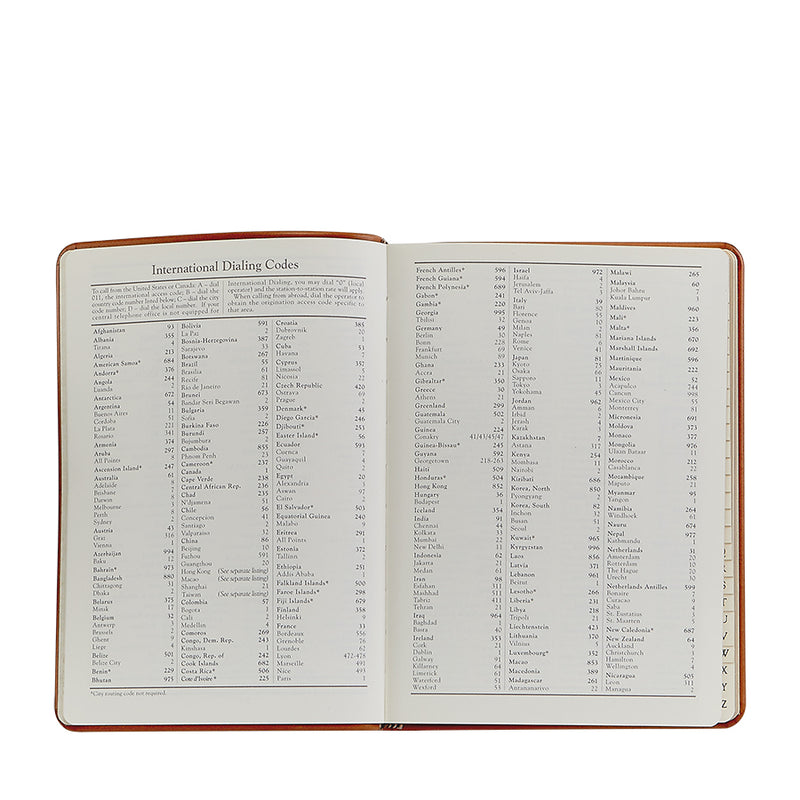 International Dialing Codes
To call from the United States or Canada: A – dial
011, the international access code; B – dial the
country code number listed below; C – dial the city
code number; D – dial the local number. If your
central telephone office is not equipped for
International Dialing, you may dial "0" (local
operator) and the station-to-station rate will apply.
When calling from abroad, dial the operator to
obtain the origination access code specific to
that area.
Afghanistan 93
Albania 355
Tirana
Algeria 213
American Samoa* 684
Andorra* 376
Angola 244
Luanda
Antarctica 672
Argentina 54
Buenos Aires 11
Cordoba
La Plata 221
Rosario 341
Armenia 374
Aruba 297
All Points 8
Ascension Island* 247
Australia 61
Adelaide 8
Brisbane 7
Darwin
Melbourne 3
Perth
Sydney 2
Austria 43
Graz 316
Vienna 1
Azerbaijan 994
Baku 12
Bahrain* 973
Bangladesh 880
Chittagong 31
Dhaka 2
Belarus 375
Minsk 17
Belgium 32
Antwerp 3
Brussels 2
Ghent 9
Liege 4
Belize 501
Belize City 2
Benin* 229
Bhutan 975
Bolivia 591
La Paz 2
Bosnia-Hercegovina 387
Sarajevo 33
Botswana 267
Brazil 55
Brasilia 61
Recife 81
Rio de Janeiro 21
Brunei 673
Bandar Seri Begawan 2
Bulgaria 359
Sofia 2
Burkina Faso 226
Burundi 257
Bujumbura
Cambodia 855
Phnom Penh 23
Cameroon* 237
Canada 1
Cape Verde 238
Central African Rep. 236
Chad 235
N'djamena 51
Chile 56
Concepcion 41
Santiago 2
Valparaiso 32
China 86
Beijing 10
Fuzhou 591
Guangzhou 20
Hong Kong (See separate listing)
Macao (See separate listing)
Shanghai 21
Taiwan (See separate listing)
Colombia 57
Bogota 1
Cali 2
Medellin 4
Comoros 269
Congo, Dem. Rep. 243
Kinshasa
Congo, Rep. of 242
Cook Islands 682
Costa Rica* 506
Cote d'Ivoire* 225
Croatia 385
Dubrovnik 20
Zagreb 1
Cuba 53
Havana 7
Cyprus 357
Limassol
Nicosia 22
Czech Republic 420
Ostrava 69
Prague 2
Denmark* 45
Diego Garcia* 246
Djibouti* 253
Easter Island* 56
Ecuador 593
Cuenca 7
Guayaquil 4
Quito 2
Egypt 20
Alexandria 3
Aswan 97
Cairo 2
El Salvador* 503
Equatorial Guinea 240
Malabo 9
Eritrea 291
All Points 1
Estonia 372
Tallinn 2
Ethiopia 251
Addis Ababa 1
Falkland Islands* 500
Faroe Islands* 298
Fiji Islands* 679
Finland 358
Helsinki 9
France 33
Bordeaux 556
Grenoble 76
Lourdes 62
Lyon 472-478
Marseille 491
Nice 493
Paris 1
*City routing code not required.
French Antilles* 596
French Guiana* 594
French Polynesia* 689
Gabon* 241
Gambia* 220
Georgia 995
Tbilisi 32
Germany 49
Berlin 30
Bonn 228
Frankfurt 69
Munich 89
Ghana 233
Accra 21
Gibraltar* 350
Greece 30
Athens 21
Greenland 299
Guatemala 502
Guatemala City 2
Guinea 224
Conakry 41/43/45/47
Guinea-Bissau* 245
Guyana 592
Georgetown 218-263
Haiti 509
Honduras* 504
Hong Kong 852
Hungary 36
Budapest 1
Iceland 354
India 91
Chennai 44
Kolkata 33
Mumbai 22
New Delhi 11
Indonesia 62
Jakarta 21
Medan 61
Iran 98
Esfahan 311
Mashhad 511
Tabriz 411
Tehran 21
Iraq 964
Baghdad 1
Basra 40
Ireland 353
Cork 21
Dublin 1
Galway 91
Killarney 64
Limerick 61
Waterford 51
Wexford 53
Israel 972
Haifa 4
Jerusalem 2
Tel Aviv-Jaffa 3
Italy 39
Bari 80
Florence 55
Genoa 10
Milan 2
Naples 81
Rome 6
Venice 41
Japan 81
Kyoto 75
Osaka 66
Sapporo 11
Tokyo 3
Yokohama 45
Jordan 962
Amman 6
Irbid 2
Jerash 4
Karak 3
Kazakhstan 7
Astana 317
Kenya 254
Mombasa 11
Nairobi 2
Kiribati 686
Korea, North 850
Pyongyang 2
Korea, South 82
Inchon 32
Busan 51
Seoul 2
Kuwait* 965
Kyrgyzstan 996
Laos 856
Latvia 371
Lebanon 961
Beirut 1
Lesotho* 266
Liberia* 231
Libya 218
Tripoli 21
Liechtenstein 423
Lithuania 370
Vilnius 5
Luxembourg* 352
Macao 853
Macedonia 389
Madagascar 261
Antananarivo 22
Malawi 265
Malaysia 60
Johor Bahru 7
Kuala Lumpur 3
Maldives 960
Mali* 223
Malta* 356
Mariana Islands 670
Marshall Islands 692
Martinique 596
Mauritania 222
Mexico 52
Acapulco 744
Cancun 998
Mexico City 55
Monterrey 81
Micronesia 691
Moldova 373
Monaco 377
Mongolia 976
Ulaan Bataar 11
Morocco 212
Casablanca 22
Mozambique 258
Maputo 21
Myanmar 95
Yangon 1
Namibia 264
Windhoek 61
Nauru 674
Nepal 977
Kathmandu 1
Netherlands 31
Amsterdam 20
Rotterdam 10
The Hague 70
Utrecht 30
Netherlands Antilles 599
Bonaire 7
Curacao 9
Saba 4
St. Eustatius 3
St. Maarten 5
New Caledonia* 687
New Zealand 64
Auckland 9
Christchurch 3
Hamilton 7
Wellington 4
Nicaragua 505
Leon 311
Managua 2
S
T
U
V
W
X
Y
Z